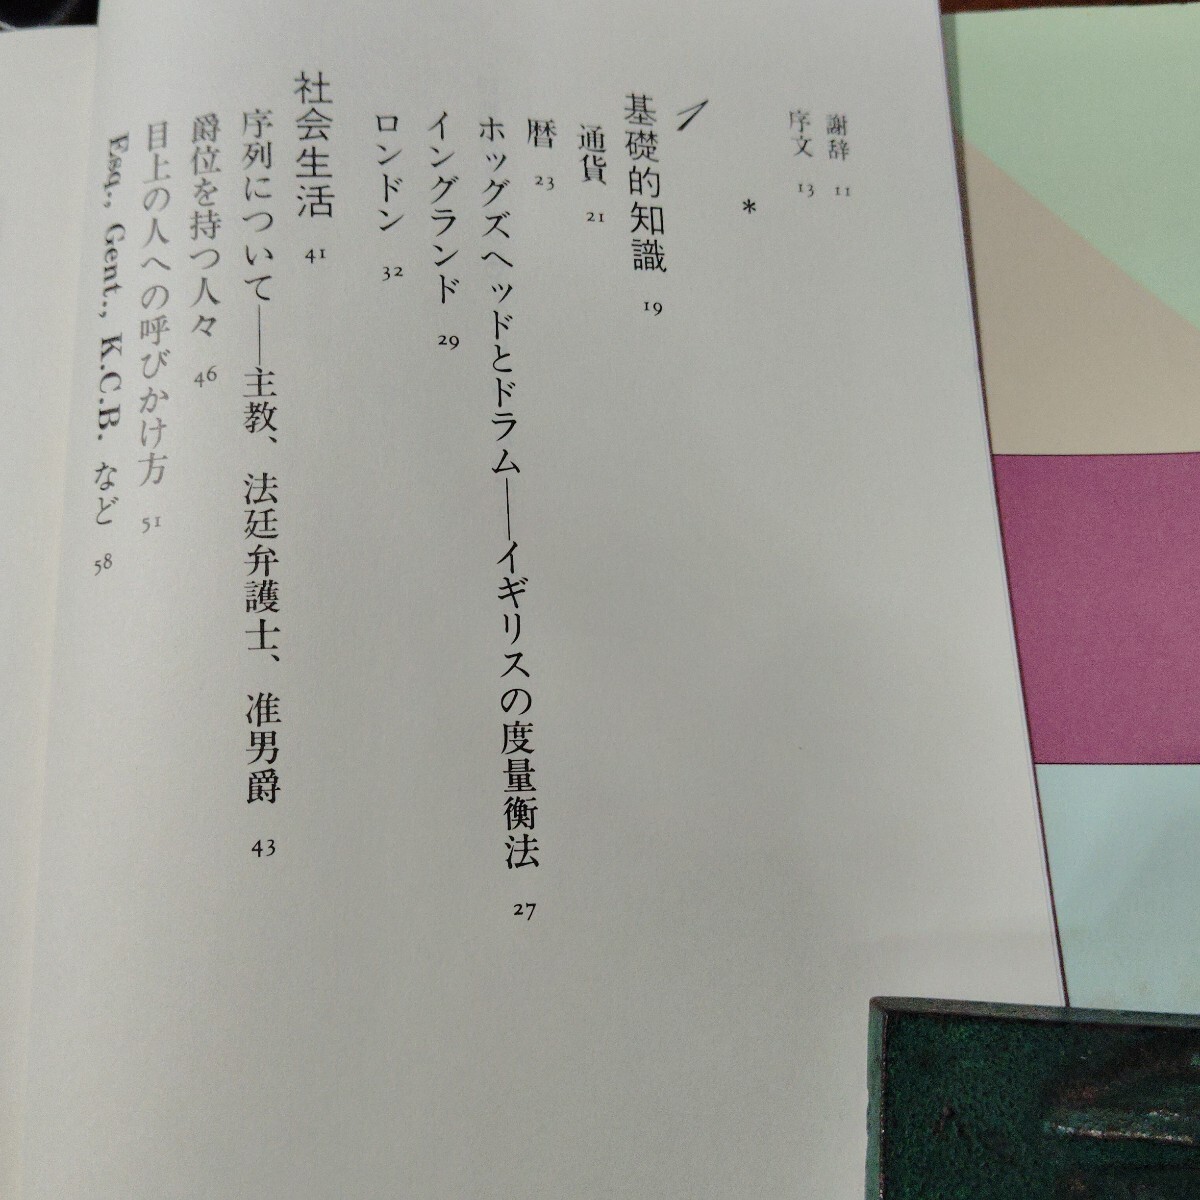 謝辞 11
序文 13
*
1
基礎的知識 19
通貨 21
暦 23
ホッグズヘッドとドラム――イギリスの度量衡法 27
イングランド 29
ロンドン 32
社会生活 41
序列について――主教、法廷弁護士、准男爵 43
爵位を持つ人々 46
目上の人への呼びかけ方 51
Esq., Gent., K.C.B. など 58